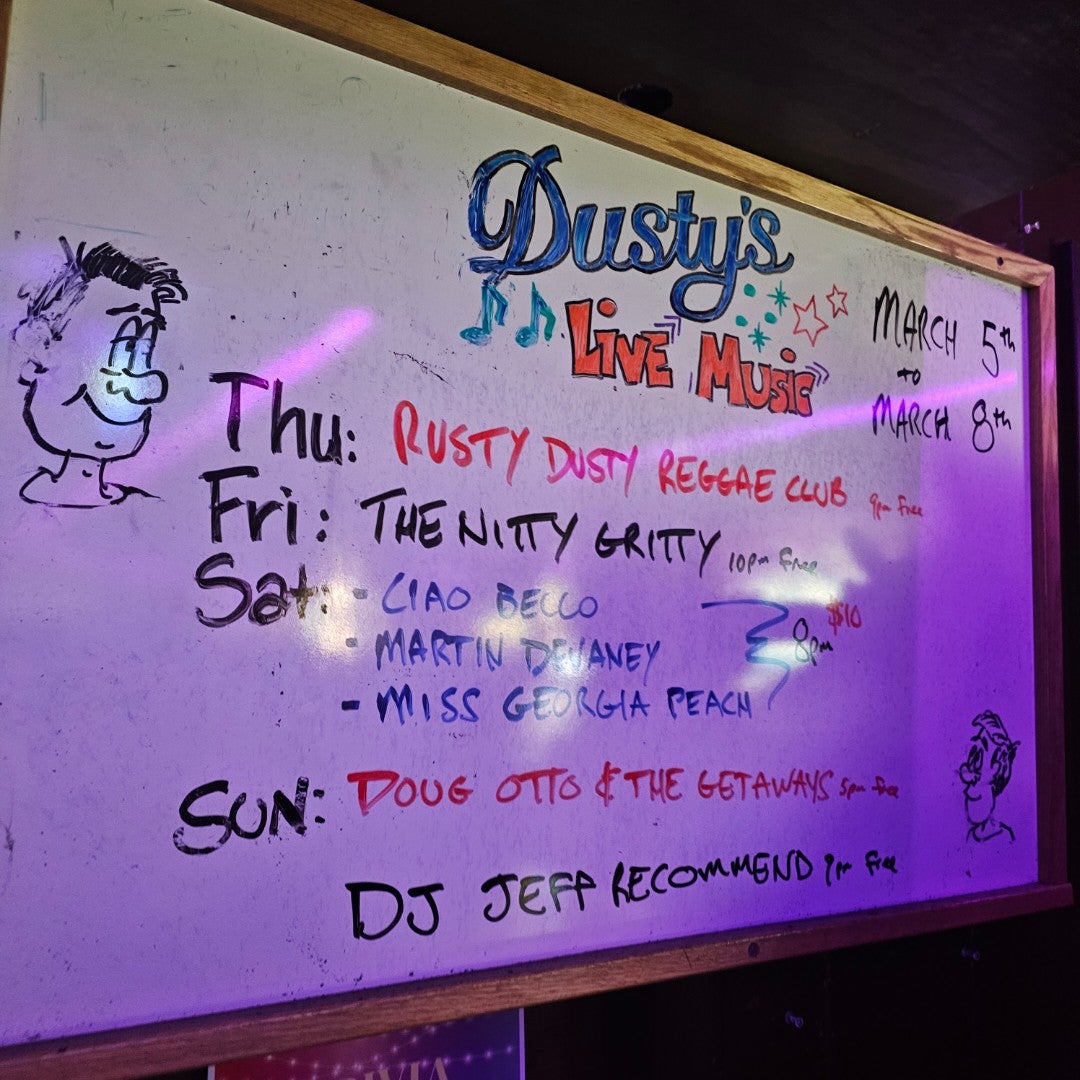 Dusty's
Live Music
MARCH 5th
to
MARCH 8th
Thu: RUSTY DUSTY REGGAE CLUB 9pm free
Fri: THE NITTY GRITTY 10pm free
Sat: - CIAO BECCO
- MARTIN DEVANEY
- MISS GEORGIA PEACH
8pm $10
SUN: DOUG OTTO & THE GETAWAYS 5pm free
DJ JEFF RECOMMEND 9pm free